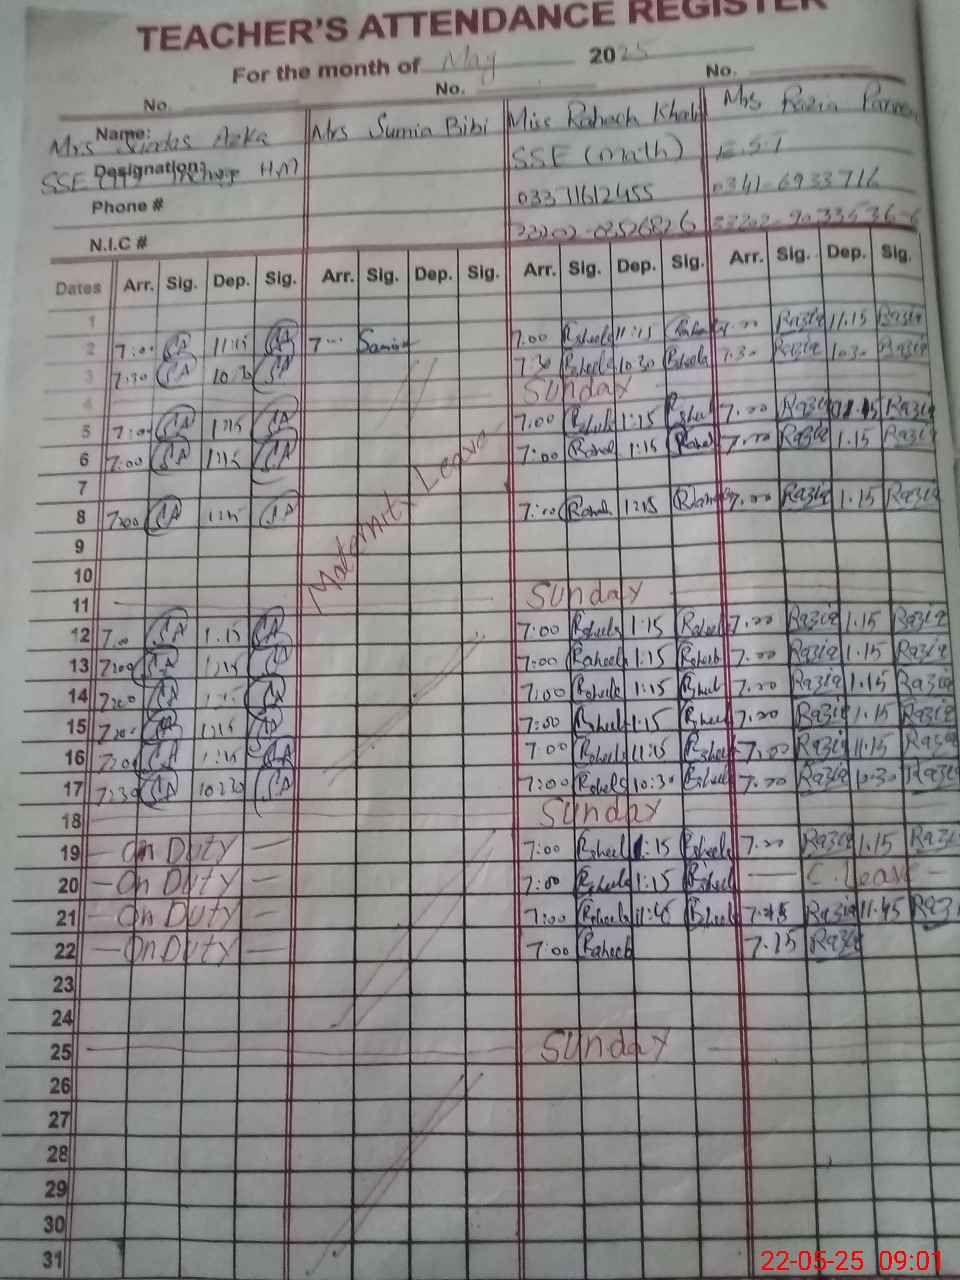 TEACHER'S ATTENDANCE REGISTER
For the month of May 2025
No. No. No.
Name: Mrs Azka Mrs Sumia Bibi Miss Raheela Khalid Mrs Razia Parveen
Designation: SSE HM SSE (math) E.S.T
Phone # 03311612455 0341-6933716
N.I.C #
Dates Arr. Sig. Dep. Sig. Arr. Sig. Dep. Sig. Arr. Sig. Dep. Sig. Arr. Sig. Dep. Sig.
1
2 7:00 SA 11:15 SA 7:00 Samia 7:00 Raheela 11:15 Raheela 7.00 Razia 11.15 Razia
3 7:30 SA 10:30 SA 7:30 Raheela 10:30 Raheela 7.30 Razia 10.30 Razia
4 Sunday
5 7:00 SA 1:15 SA 7:00 Raheela 1:15 Raheela 7.00 Razia 1.15 Razia
6 7:00 SA 1:15 SA 7:00 Raheela 1:15 Raheela 7.00 Razia 1.15 Razia
Maternity Leave
7
8 7:00 SA 1:15 SA 7:00 Raheela 1:15 Raheela 7.00 Razia 1.15 Razia
9
10
11 Sunday
12 7:00 SA 1:15 SA 7:00 Raheela 1:15 Raheela 7.00 Razia 1.15 Razia
13 7:00 SA 1:15 SA 7:00 Raheela 1:15 Raheela 7.00 Razia 1.15 Razia
14 7:00 SA 1:15 SA 7:00 Raheela 1:15 Raheela 7.00 Razia 1.15 Razia
15 7:00 SA 1:15 SA 7:00 Raheela 1:15 Raheela 7.00 Razia 1.15 Razia
16 7:00 SA 11:15 SA 7:00 Raheela 11:15 Raheela 7.00 Razia 11.15 Razia
17 7:30 SA 10:30 SA 7:00 Raheela 10:30 Raheela 7.00 Razia 10.30 Razia
18 Sunday
19 On Duty 7:00 Raheela 1:15 Raheela 7.00 Razia 1.15 Razia
20 On Duty 7:00 Raheela 1:15 Raheela C. Leave
21 On Duty 7:00 Raheela 11:45 Raheela Razia 11.45 Razia
22 On Duty 7:00 Raheela 7.15 Razia
23
24
25 Sunday
26
27
28
29
30
31
22-05-25 09:01